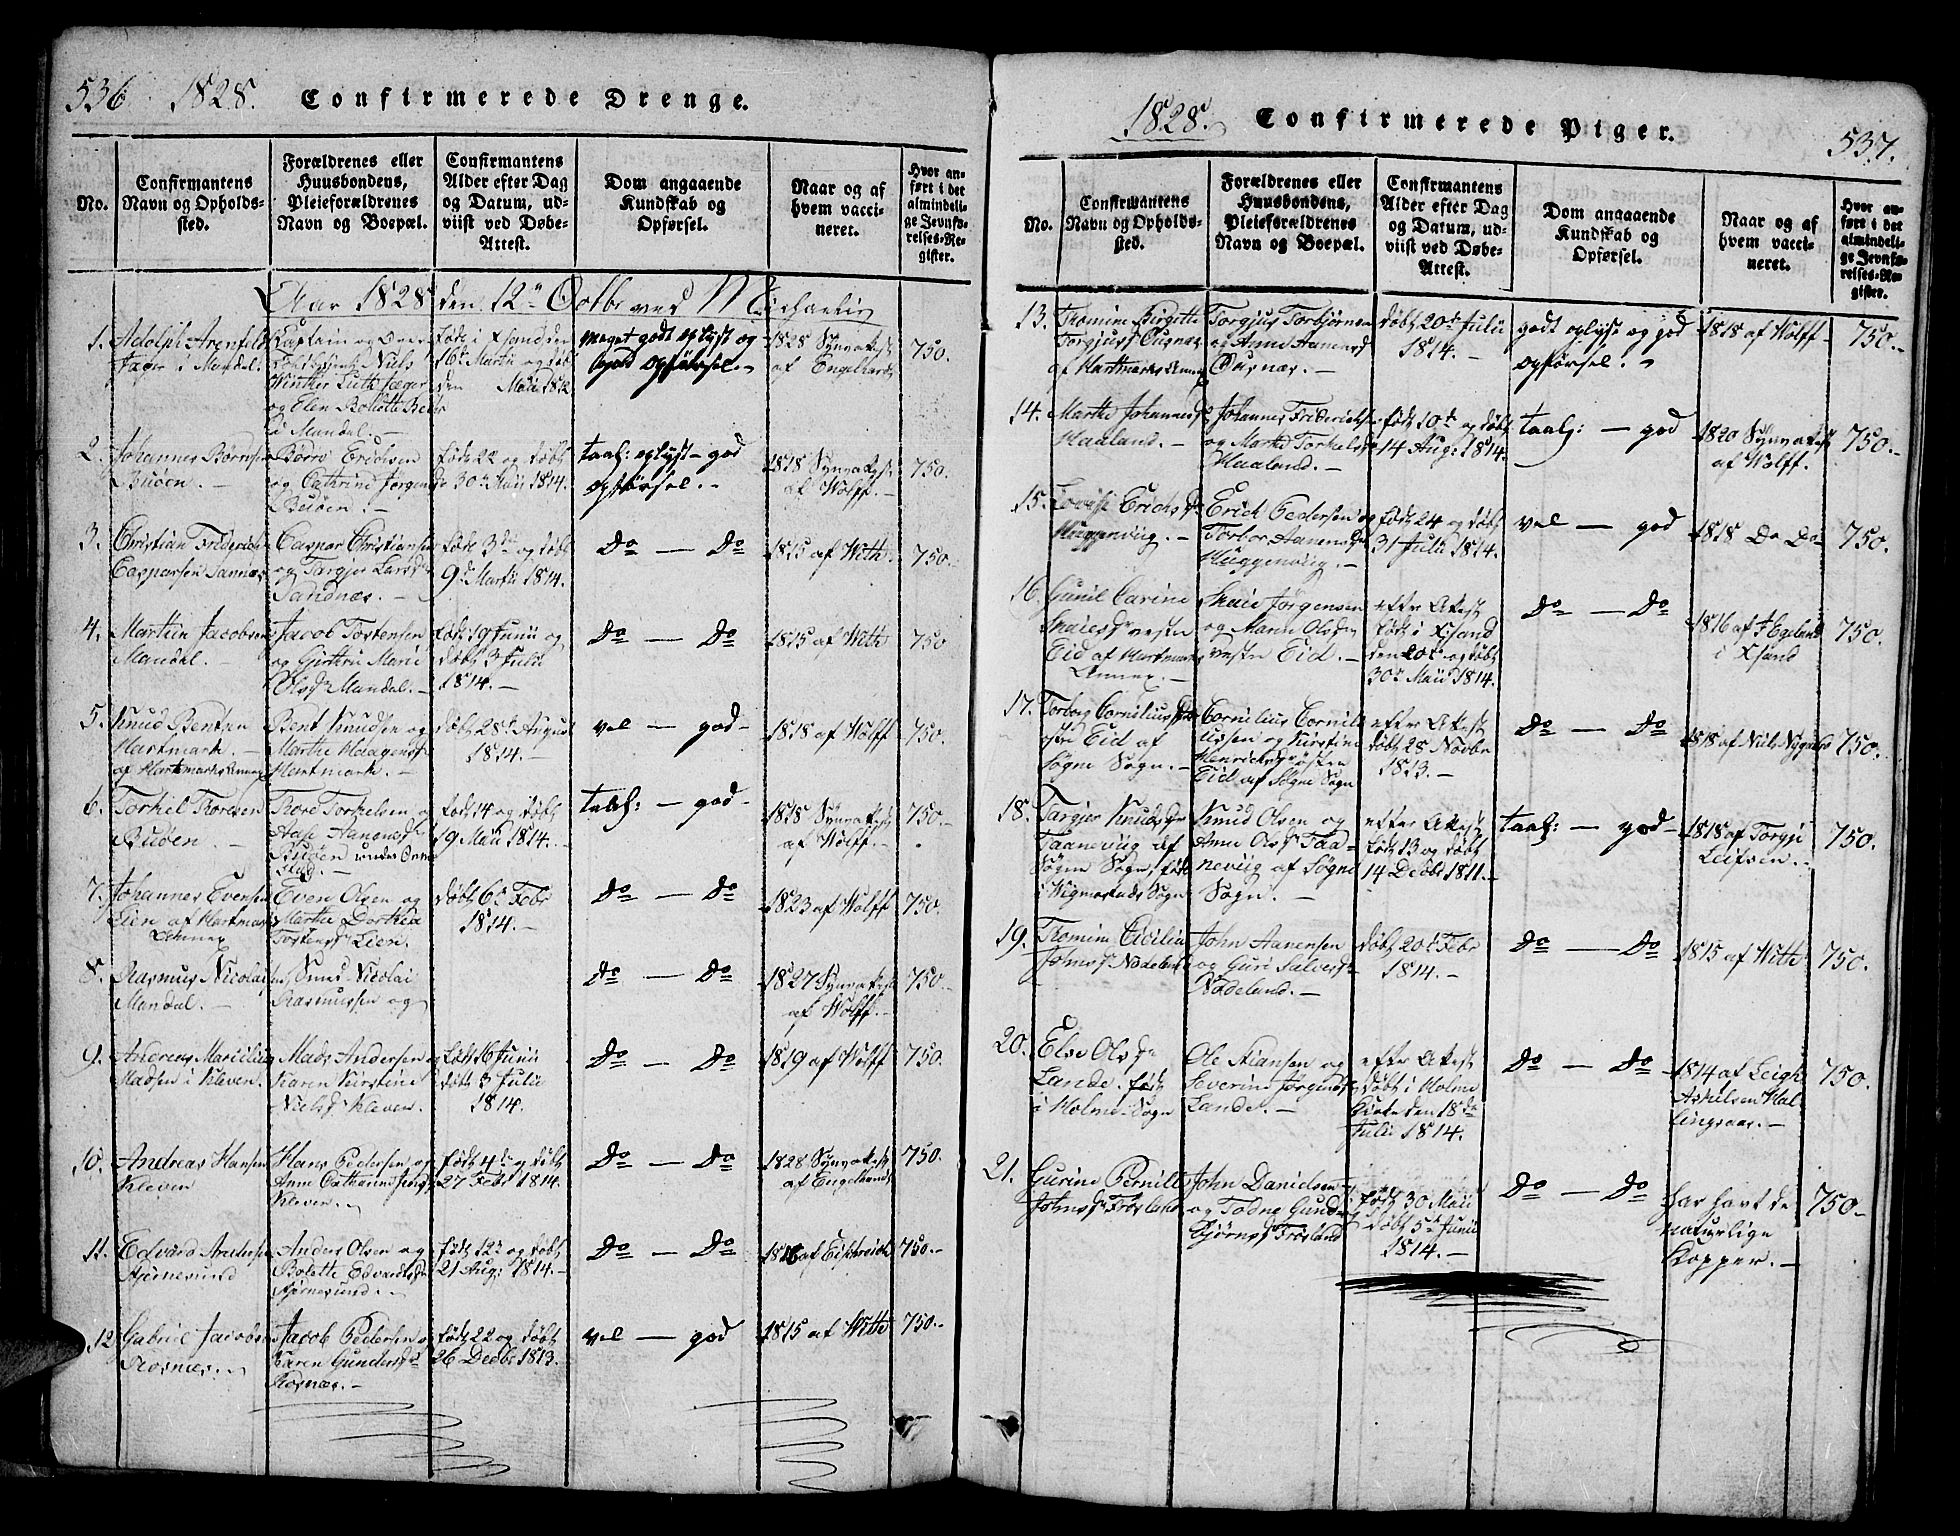 536 1828. Confirmerede Drenge.
No.
Confirmantens Navn og Opholdssted.
Forældrenes eller Huusbondens, Pleieforældrenes Navn og Boepæl.
Confirmantens Alder efter Dag og Datum, udviist ved Døbe-Attest.
Dom angaaende Kundskab og Opførsel.
Naar og af hvem vaccineret.
Hvor anført i det almindelige Jevnførelses-Register.
Aar 1828 den 12te Octbr ved
1. Adolph Arenfeldt Jæger i Mandal.
Captain og Niels Winther Luth Jæger og Elen Bolette i Mandal.
født i Xsand den 16de Martii og døbt den Maii 1812
meget godt oplyst og god opførsel.
1828 af Engelhardt
750.
2. Johannes Børresen Buøen.
Børre Erichsen og Cathrine Jørgensdr Buøen.
født 22 og døbt 30te Maii 1814.
taal: oplyst - god opførsel.
1818 af Wolff.
750.
3. Christian Friderich Caspersen Sannæs
Caspar Christiansen og Targjer Larsdr Sandnæs.
født 3de og døbt 9de Martii 1814.
Do — Do
1815 af With.
750.
4. Martin Jacobsen Mandal.
Jacob Torstensen og Gjertru Marie Olsdr Mandal.
født 19 Junii og døbt 3 Julii 1814.
Do — Do
1815 af With
750
5. Knud Bentsen Hartmark. af Hartmarks
Bent Knudsen og Marthe Haagensdr Hartmark.
døbt 28de August 1814.
vel — god
1818 af Wolff
750.
6. Torkel Thoresen Buøen.
Thore Torkelsen og Aase Aanensdr Buøen under
født 14 og døbt 19 Maii 1814.
taal: — god
1818 af Wolff.
750.
7. Johannes Evensen Lien af Hartmark
Even Olsen og Marthe Dorthea Torstensdr Lien.
døbt 6te Febr 1814.
Do — Do
1823 af Wolff
750.
8. Rasmus Nicolaisen Mandal.
Nicolai Rasmussen og
Do — Do
1827 af Wolff.
750.
9. Andreas Marcelius Madsen i Kleven.
Mads Andersen og Karen Kirstine Nielsdr Kleven.
født 16 Junii døbt 3 Julii 1814.
Do — Do
1819 af Wolff
750.
10. Andreas Hansen Kleven
Hans Pedersen og Anne Cathrine Kleven.
født 4de og døbt 27 Febr 1814.
Do — Do
1828 af Engelhardt
750.
11. Edvard Andersen Stjernesund
Anders Olsen og Bolette Edvardsdr Stjernesund.
født 12te og døbt 21 Aug: 1814.
Do — Do
1816 af
750.
12. Gabriel Jacobsen Rosnæs.
Jacob Pedersen og Karen Gundersdr Rosnæs.
født 22 og døbt 26 Decbr 1813.
vel — god
1815 af With
750.
1828. Confirmerede Piger. 537.
No.
Confirmantens Navn og Opholdssted.
Forældrenes eller Huusbondens, Pleieforældrenes Navn og Boepæl.
Confirmantens Alder efter Dag og Datum, udviist ved Døbe-Attest.
Dom angaaende Kundskab og Opførsel.
Naar og af hvem vaccineret.
Hvor anført i det almindelige Jevnførelses-Register.
13. Tromine Birgitte Torgjusdr af Hartmarks
Torgjus Torbjørnsen og Anne Aanensdr
døbt 20de Julii 1814.
godt oplyst og god opførsel.
1818 af Wolff
750.
14. Marthe Johannesdr Haaland.
Johannes Friderichsen og Marthe Torkelsdr Haaland.
født 10de og døbt 14 Aug: 1814.
taal: — god
1820 af Wolff.
750.
15. Lovise Erichsdr Huggenviig.
Erich Pedersen og Torbor Aanensdr Huggenviig.
født 24 og døbt 31 Julii 1814.
vel — god
1818 Do Do
750.
16. Gunil Carine vestre Eid af Hartmarks
Jørgensen og Maria Olsdr vestre Eid.
efter Attest født i Xsand den 20de og døbt 30te Maii 1814.
Do — Do
1816 af Egeland i Xsand
750.
17. Torborg Corneliusdr østre Eid af Søgne Sogn.
Cornelius Corneliussen og Kirstine Henrichsdr østre Eid af Søgne Sogn
efter Attest døbt 28 Novbr 1813.
Do — Do
1818 af Niels
750.
18. Targjer Knudsdr Taanevig af Søgne Sogn, født i Wigmostads Sogn
Knud Olsen og Anne Olsdr Taanevig af Søgne Sogn.
efter Attest født 13 og døbt 14 Decbr 1811.
taal: — god
1818 af Torgje Leifsen.
750.
19. Tromine Cicilia Johnsdr Nodeland
John Aanensen og Guri Salvesdr Nodeland.
døbt 20de Febr 1814.
Do — Do
1815 af With
750.
20. Else Olsdr Lande. født i Holme Sogn
Ole Stiansen og Severine Jørgensdr Lande.
efter Attest døbt i Holme Kirke den 18de Julii 1814.
Do — Do
1814 af Leigh Askelsen
750.
21. Gurine Pernille Johnsdr Frøsland
John Danielsen og Todne Gundbjørnsdr Frøsland
født 30 Maii døbt 5te Junii 1814.
Do — Do
har havt de naturlige Kopper.
750.